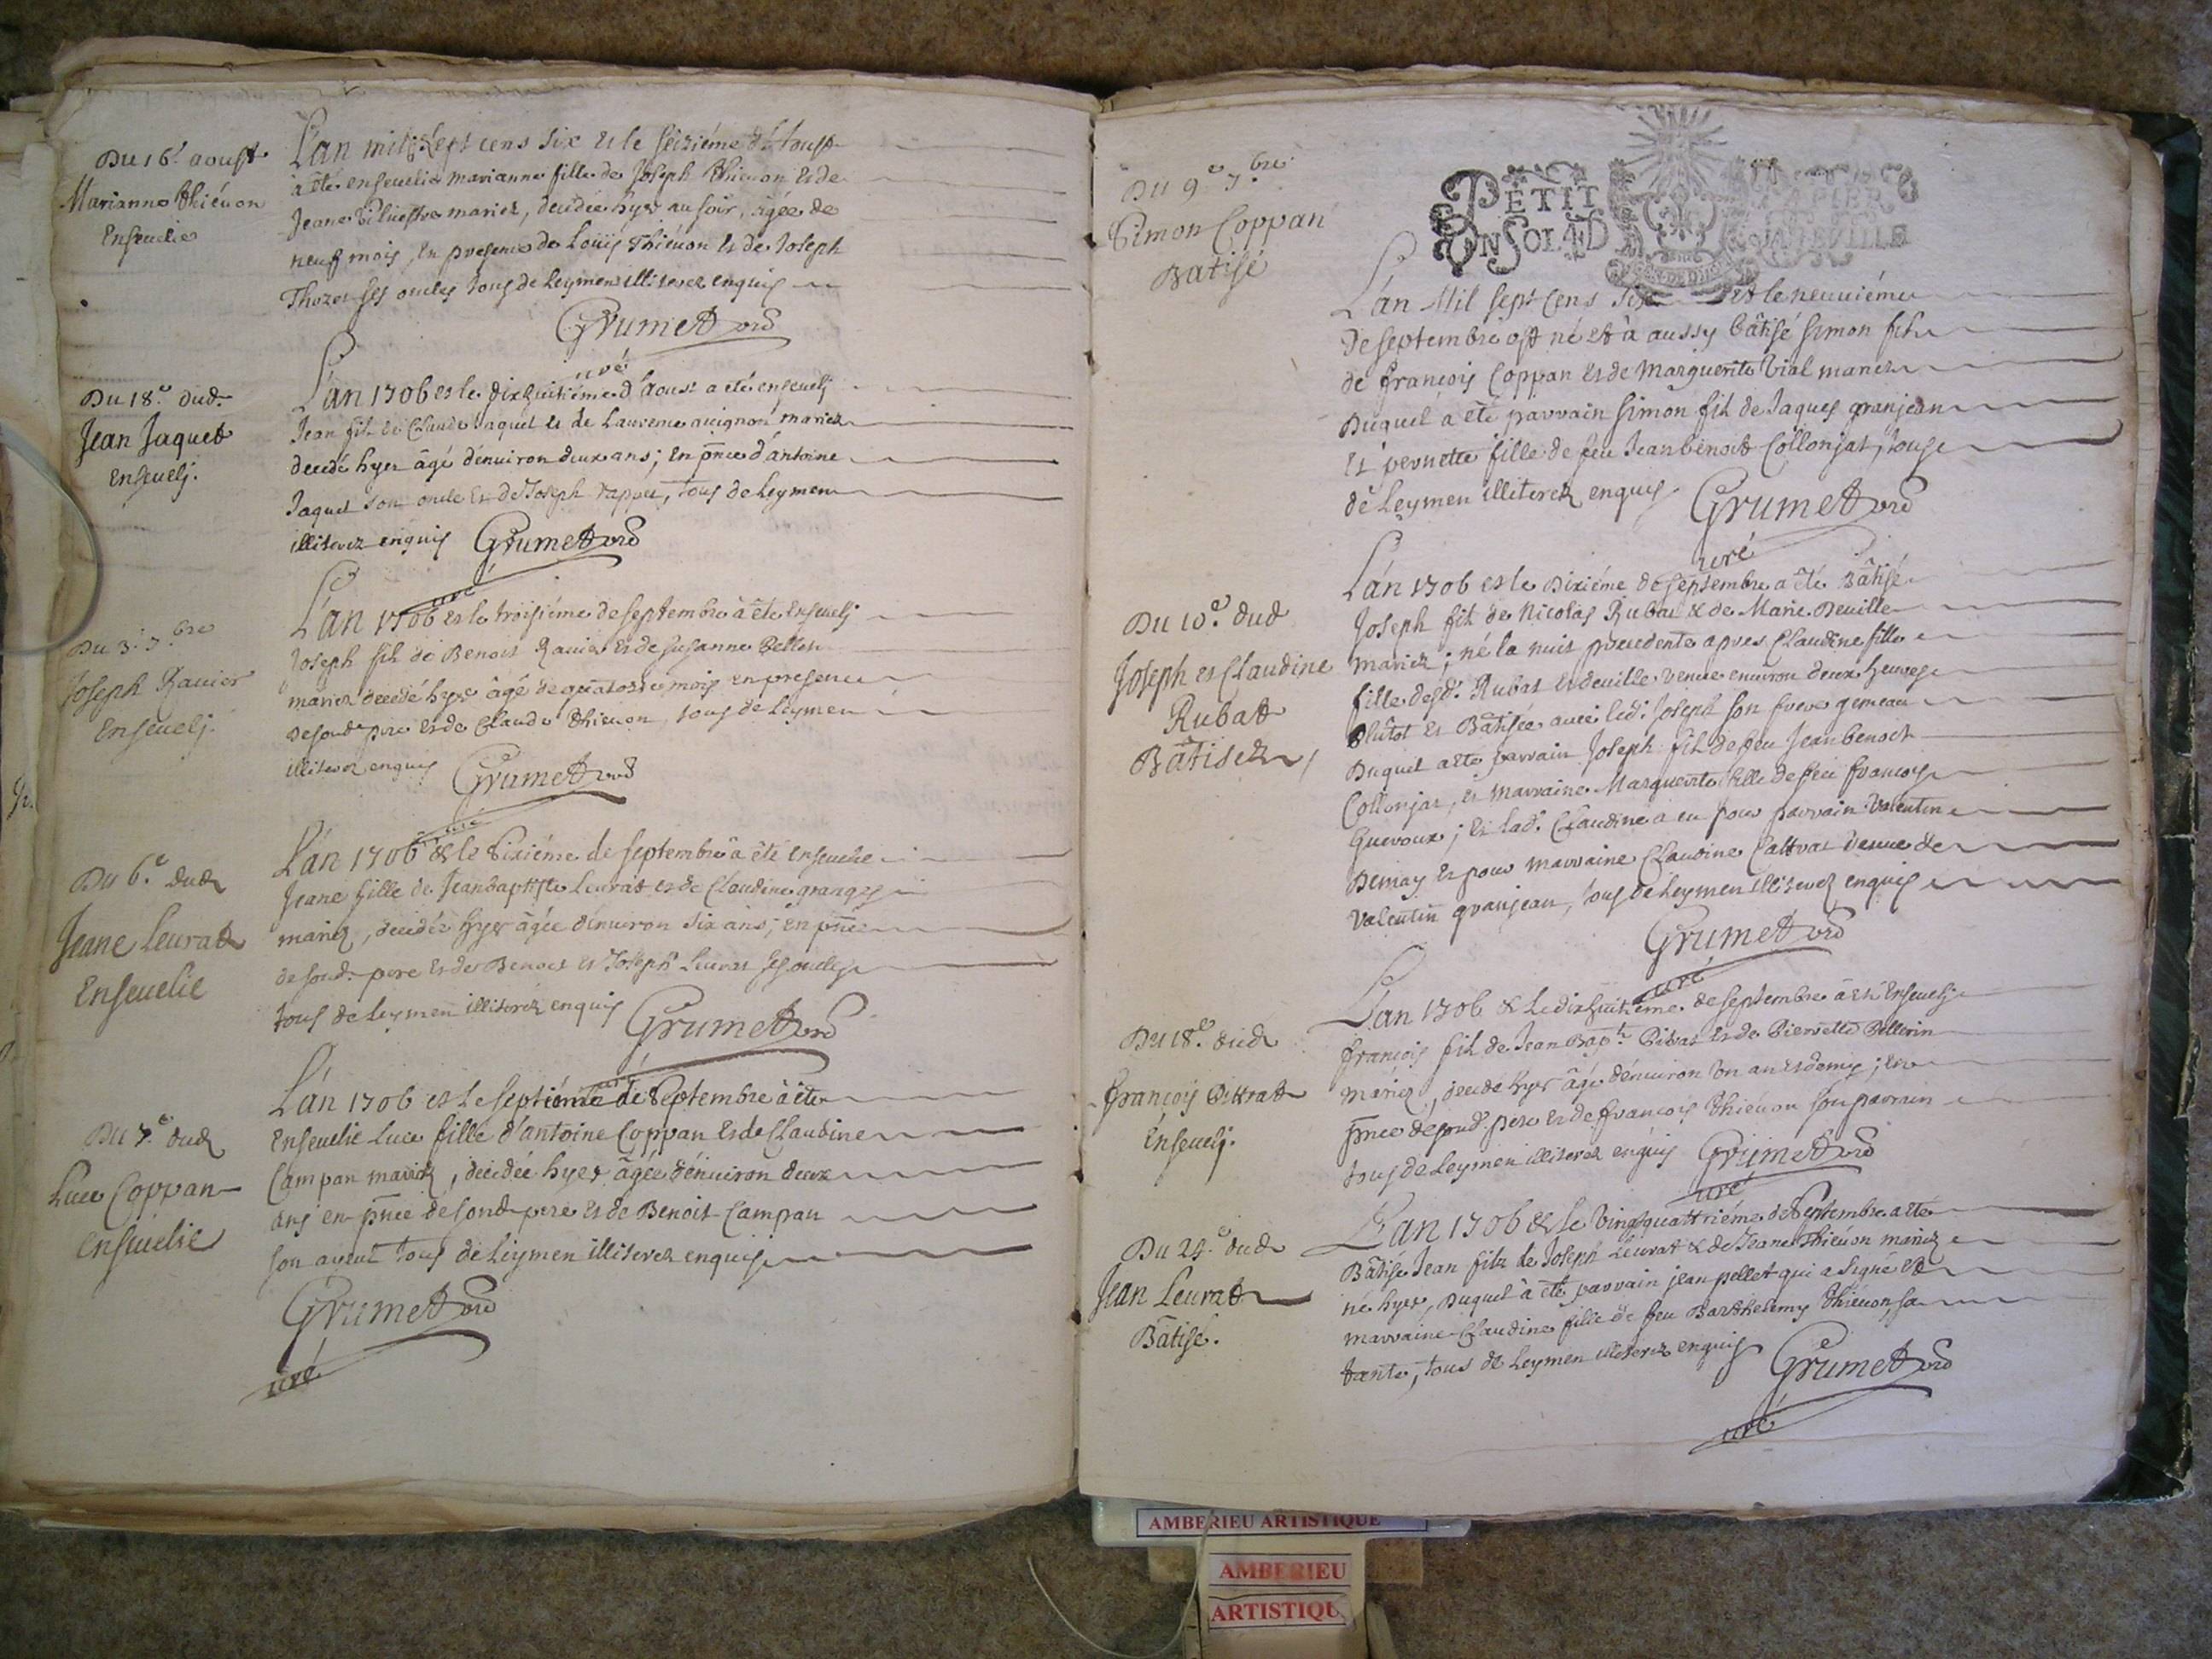 Du 16.e aoust
Marianne Thiéuon
Enseuelie
L'an mil sept cens six et le seiziéme d'Aoust
à êté enseuelie marianne fille de Joseph Thieuon et de
Jeane Siluestre mariez, decidée hyer au soir, agée de
neuf mois, en presence de Loüis Thiéuon et de Joseph
Thozet ses oncles tous de Leymen illiterez enquis
Grumet
curé
Du 18.e dud.
Jean Jaquet
enseuelj.
L'an 1706 et le dixhuitiéme d'Aoust a eté enseuelj
Jean fils de Claude Jaquet et de Laurence auignon mariez
decedé hyer âgé d'enuiron deux ans; en pñce d'antoine
Jaquet son oncle et de Joseph tous de Leymen
illiterez enquis Grumet
curé
Du 3.e 7.bre
Joseph Rauier
Enseuelj
L'an 1706 et le troisiéme de septembre à êté Enseuelj
Joseph fils de Benoit Rauier et de Susanne Pellet
mariez decedé hyer âgé de quatorze mois en presence
de sond. pere et de Claude Thieuon, tous de Leymen
illiterez enquis Grumet
curé
Du 6.e dud.
Jeane Leurat
Enseuelie
L'an 1706 & le Sixiéme de septembre a êté enseuelie
Jeane fille de Jeanbaptiste Leurat et de Claudine granges
mariez, decidée hyer âgée d'enuiron six ans; en pñce
de sond. pere et de Benoit et Joseph Leurat ses oncles
tous de Leymen illiterez enquis Grumet
curé
Du 7.e dud.
Luce Coppan
enseuelie
L'an 1706 et le septiéme de Septembre à êté
Enseuelie Luce fille d'antoine Coppan et de Claudine
Campan mariez, decidée hyer âgée d'énuiron deux
ans en pñce de sond. pere et de Benoit Campan
son ayeul tous de Leymen illiterez enquis
Grumet
curé
PETIT PAPIER
UN SOL 4 D
Du 9.e 7.bre
Simon Coppan
Batisé
L'an Mil sept cens six et le neuuiéme
de septembre est né et à aussy bâtisé simon fils
de françois Coppan et de Marguerite Vial mariez
Duquel à êté parrain simon fils de Jaques granjean
et pernette fille de feu Jean benoit Collonjat, tous
de Leymen illiterez enquis Grumet
curé
Du 10.e dud
Joseph et Claudine
Rubat
Bâtisez
L'an 1706 et le Dixiéme de septembre a êté Bâtisé
Joseph fils de Nicolas Rubat & de Marie Deuille
mariez; né la nuit precedente apres Claudine fille
fille desd. Rubat et deuille venue enuiron deux heures
plûtot et Batisée auec led. Joseph son frere gemeau
Duquel a êté parrain Joseph fils de feu Jean benoit
Collonjat, et marraine Marguerite fille de feu françois
Queroux; et lad. Claudine a eu pour parrain Valentin
Demay et pour marraine Claudine veuue de
Valentin granjean, tous de Leymen illiterez enquis
Grumet
curé
Du 18.e dud.
françois Pittrat
Enseuelj.
L'an 1706 & Le dixhuitiéme de septembre à êté Enseuelj
françois fils de Jean Bap.te Pitrat et de Pierrette Pellerin
mariez, decedé hyer âgé d'énuiron un an et demy; en
pñce de sond. pere et de françois Thiéuon son parrain
tous de Leymen illiterez enquis Grumet
curé
Du 24.e dud.
Jean Leurat
Bâtisé.
L'an 1706 & le Vingtquattriéme de Septembre a êté
Bâtisé Jean fils de Joseph Leurat & de Jeane Thiéuon mariez
né hyer, Duquel à êté parrain jean pellet qui a signé et
marraine Claudine fille de feu Barthelemy Thieuon, sa
tante, tous de Leymen illiterez enquis Grumet
curé
AMBERIEU ARTISTIQUE
AMBERIEU
ARTISTIQU